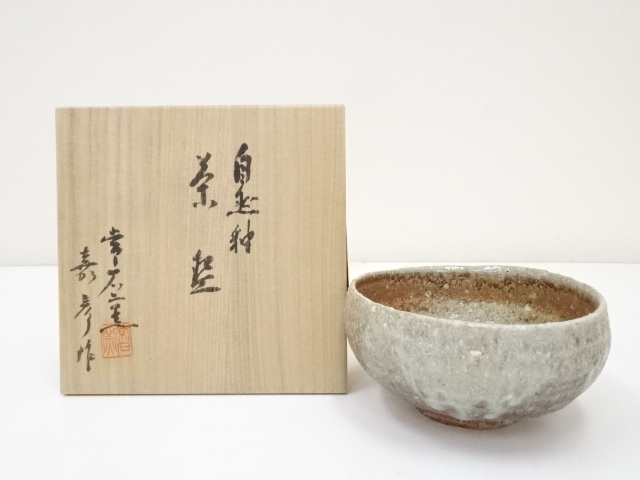 自然釉
茶盌
常石窯
嘉彦作